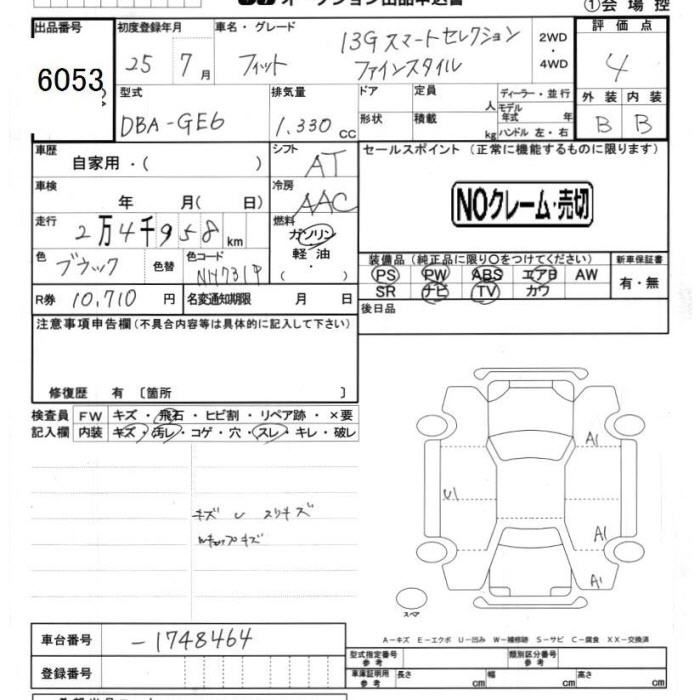 オークション出品申込書
①会場控
出品番号
6053
初度登録年月
25 7月
車名・グレード
フィット
13Gスマートセレクション
ファインスタイル
2WD
・
4WD
評価点
4
外装 内装
B B
型式
DBA-GE6
排気量
1.330 cc
ドア
定員
人
形状
積載
kg
ディーラー・並行
モデル年式 年
ハンドル 左・右
車歴
自家用・( )
シフト
AT
セールスポイント (正常に機能するものに限ります)
NOクレーム・売切
車検
年 月( 日)
冷房
AAC
走行
2万4千958 km
燃料
ガソリン
軽油
( ・ )
色
ブラック
色替
色コード
NH731P
装備品 (純正品に限り○をつけてください)
PS PW ABS エアB AW
SR ナビ TV カワ
新車保証書
有・無
R券 10,710 円
名変通知期限 月 日
後日品
注意事項申告欄(不具合内容等は具体的に記入して下さい)
修復歴 有 〔箇所 〕
検査員
記入欄
FW キズ・飛石・ヒビ割・リペア跡・×要
内装 キズ・汚レ・コゲ・穴・スレ・キレ・破レ
キズ U スリキズ
キャップキズ
A1
U1
A1
A1
スペア
A−キズ E−エクボ U−凹み W−補修跡 S−サビ C−腐食 XX−交換済
車台番号
-1748464
登録番号
型式指定番号
参考
類別区分番号
参考
車庫証明用
参考
長さ cm 幅 cm 高さ cm